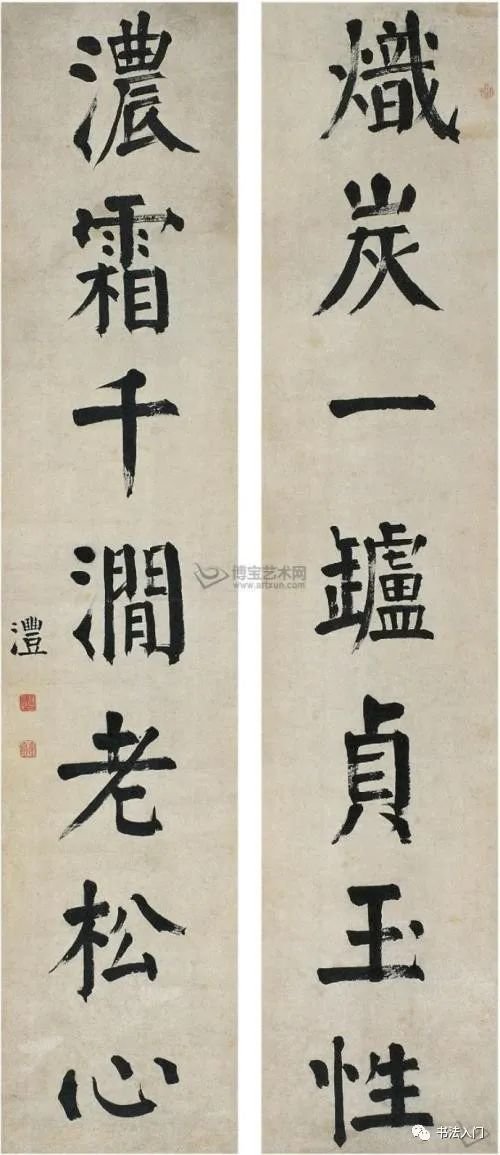 熾炭一鑪貞玉性
濃霜千澗老松心
澧
博宝艺术网
www.artxun.com
书法入门